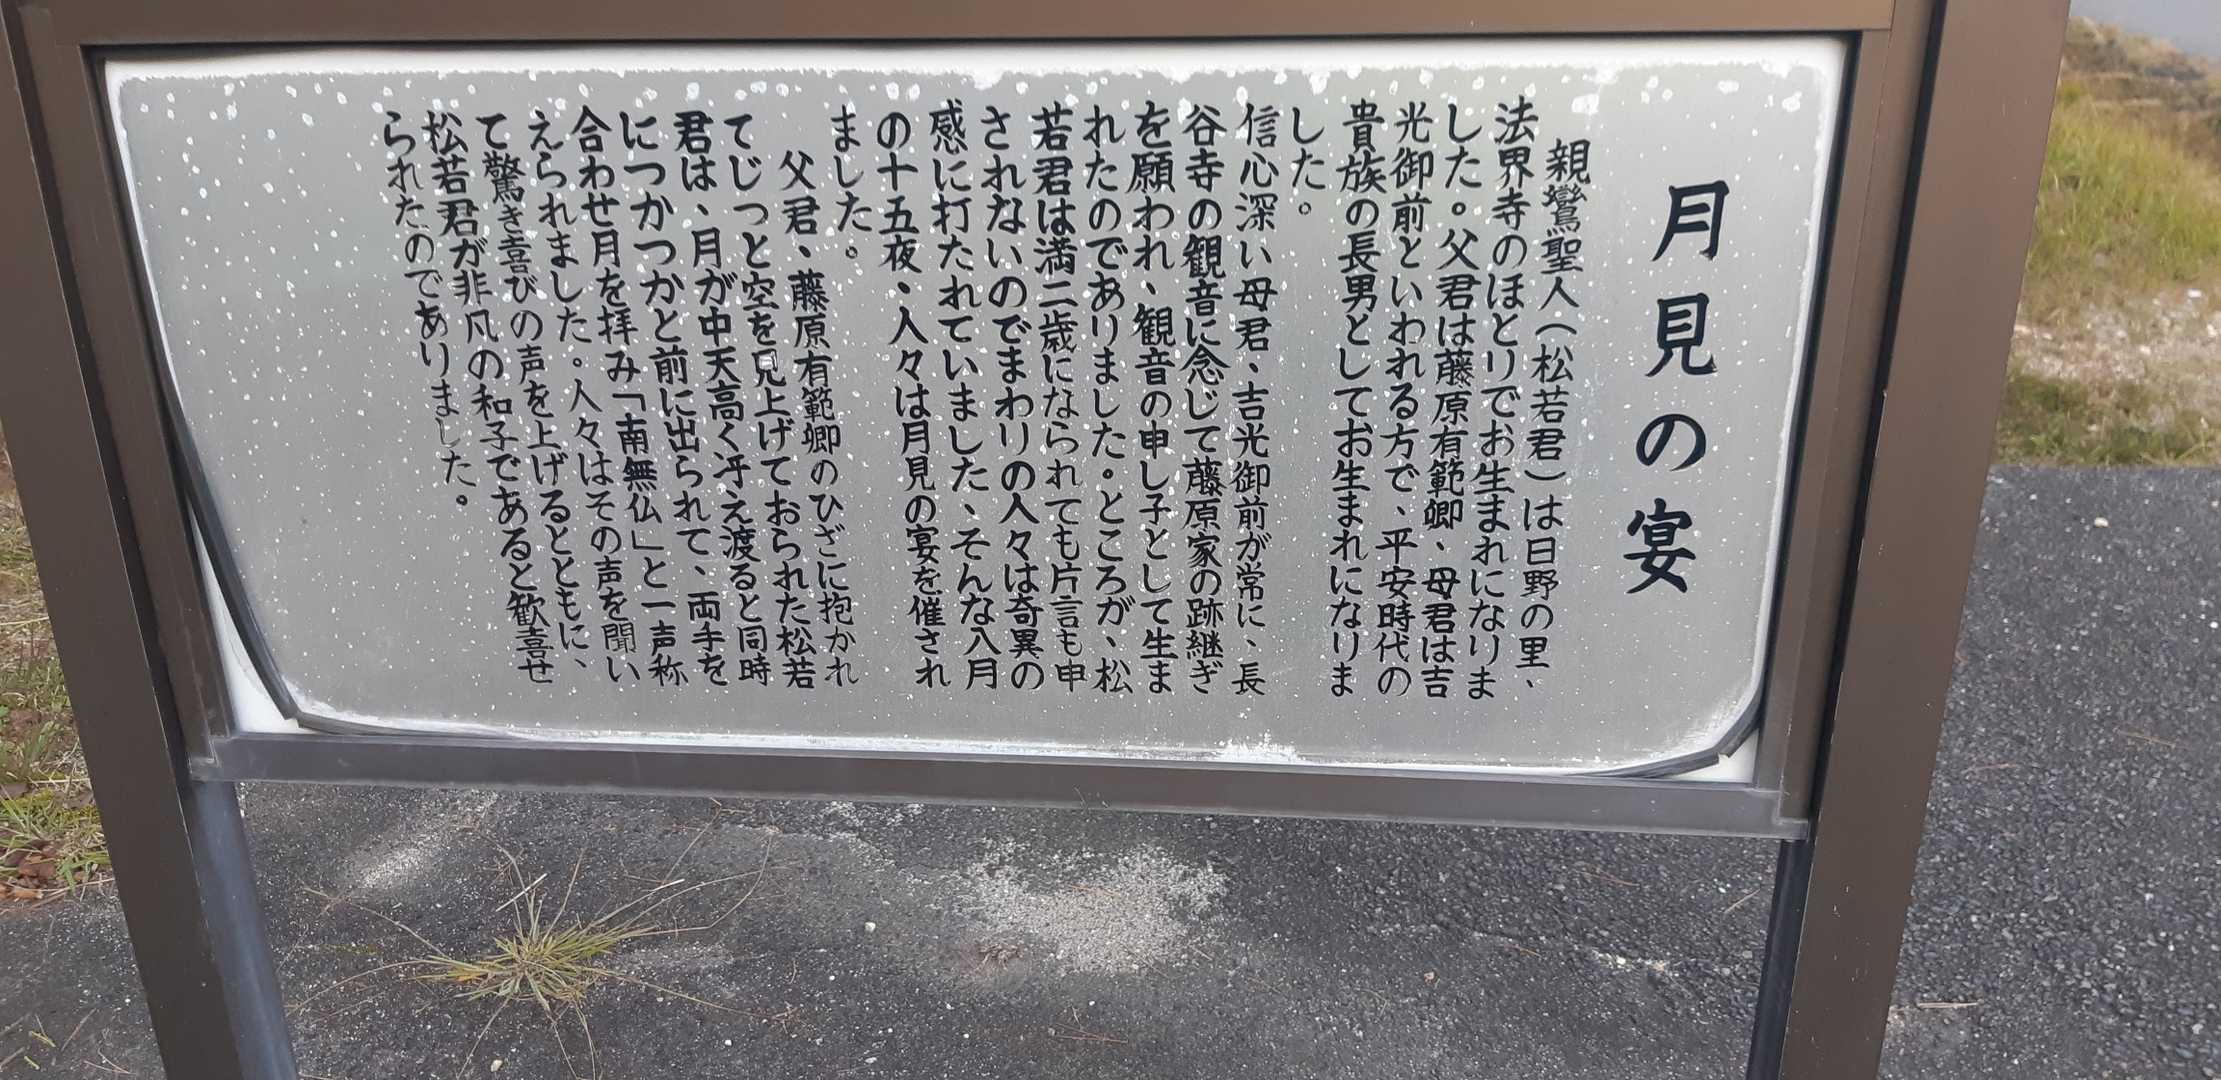 月見の宴
親鸞聖人(松若君)は日野の里、
法界寺のほとりでお生まれになりま
した。父君は藤原有範卿、母君は吉
光御前といわれる方で、平安時代の
貴族の長男としてお生まれになりま
した。
信心深い母君・吉光御前が常に、長
谷寺の観音に念じて藤原家の跡継ぎ
を願われ、観音の申し子として生ま
れたのでありました。ところが、松
若君は満二歳になられても片言も申
されないのでまわりの人々は奇異の
感に打たれていました、そんな八月
の十五夜・人々は月見の宴を催され
ました。
父君・藤原有範卿のひざに抱かれ
てじっと空を見上げておられた松若
君は、月が中天高く冴え渡ると同時
につかつかと前に出られて、両手を
合わせ月を拝み「南無仏」と一声称
えられました。人々はその声を聞い
て驚き喜びの声を上げるとともに、
松若君が非凡の和子であると歓喜せ
られたのでありました。